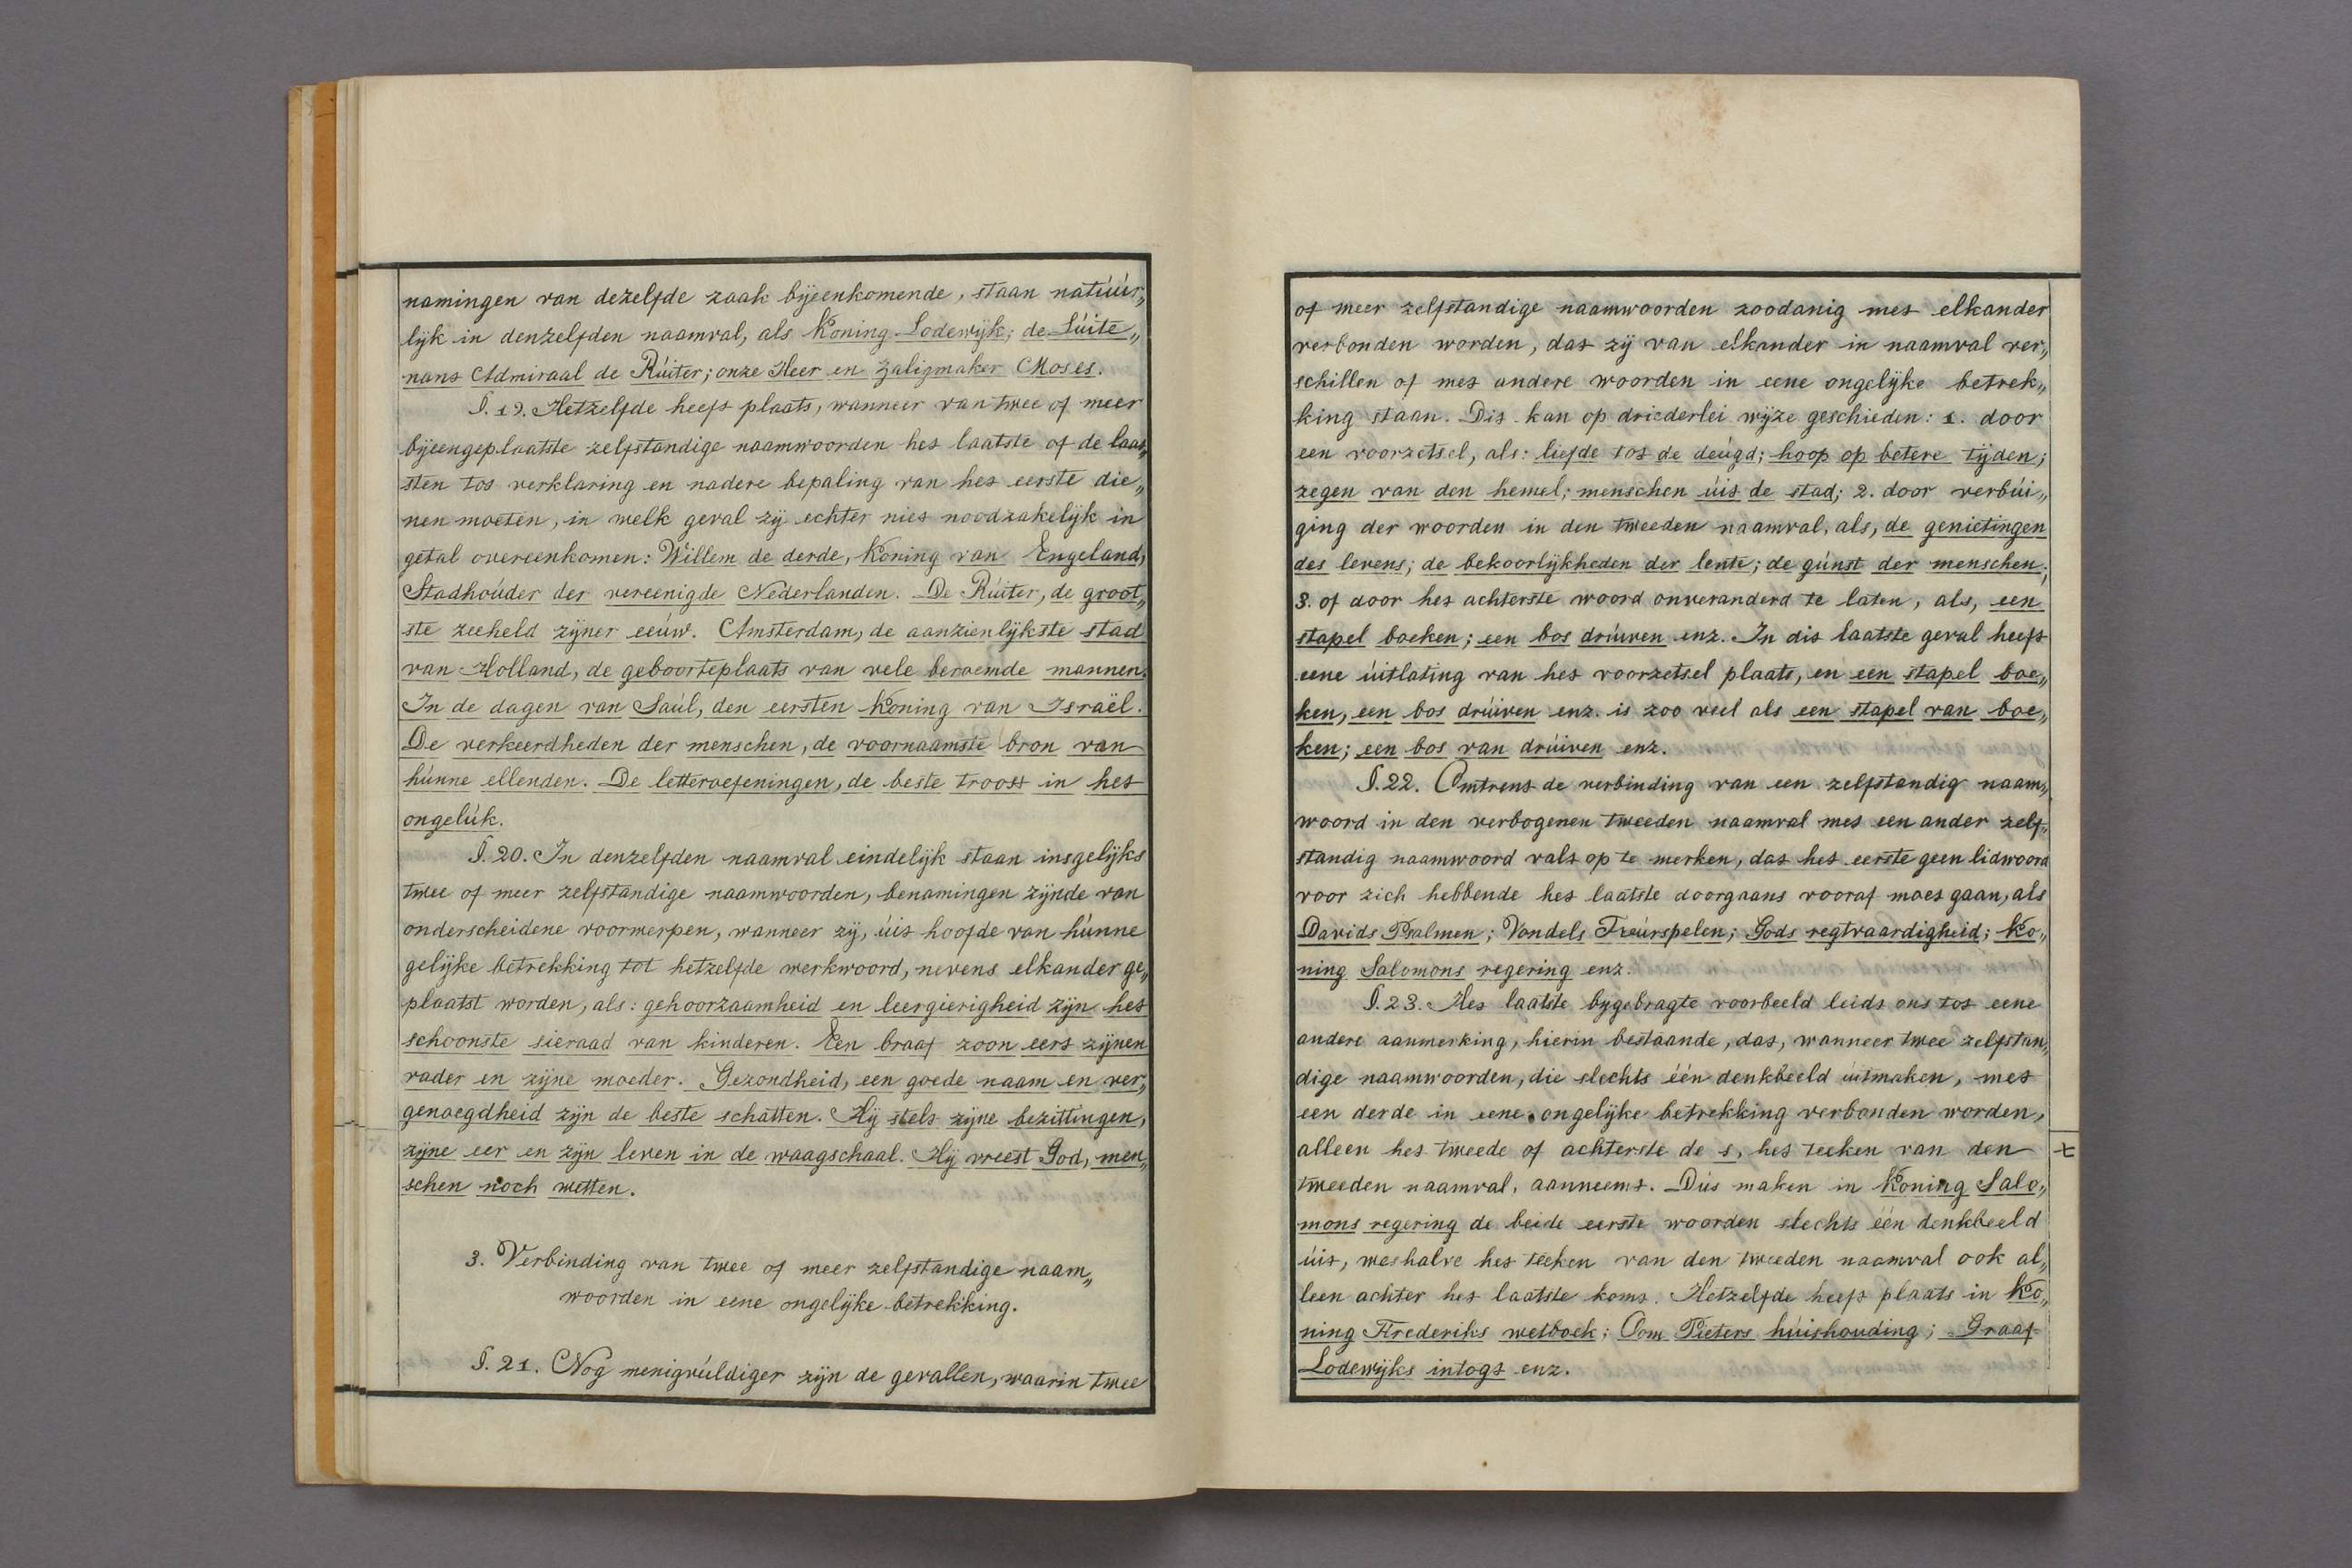 namingen van dezelfde zaak bijeenkomende, staan natúúr„
lijk in denzelfden naamval, als Koning Lodewijk; de Lúite„
nant Admiraal de Rúiter; onze Heer en Zaligmaker Moses.
§. 19. Hetzelfde heeft plaats, wanneer van twee of meer
bijeengeplaatste zelfstandige naamwoorden het laatste of de laat„
sten tot verklaring en nadere bepaling van het eerste die„
nen moeten, in welk geval zij echter niet noodzakelijk in
getal overeenkomen: Willem de derde, Koning van Engeland,
Stadhoúder der vereenigde Nederlanden. De Rúiter, de groot„
ste zeeheld zijner eeúw. Amsterdam, de aanzienlijkste stad
van Holland, de geboorteplaats van vele beroemde mannen.
In de dagen van Saúl, den eersten Koning van Israël.
De verkeerdheden der menschen, de voornaamste bron van
húnne ellenden. De letteroefeningen, de beste troost in het
ongelúk.
§. 20. In denzelfden naamval eindelijk staan insgelijks
twee of meer zelfstandige naamwoorden, benamingen zijnde van
onderscheidene voorwerpen, wanneer zij, úit hoofde van húnne
gelijke betrekking tot hetzelfde werkwoord, nevens elkander ge„
plaatst worden, als: gehoorzaamheid en leergierigheid zijn het
schoonste sieraad van kinderen. Een braaf zoon eert zijnen
vader en zijne moeder. Gezondheid, een goede naam en ver„
genoegdheid zijn de beste schatten. Hij stelt zijne bezittingen,
zijne eer en zijn leven in de waagschaal. Hij vreest God, men„
schen noch wetten.
3. Verbinding van twee of meer zelfstandige naam„
woorden in eene ongelijke betrekking.
§. 21. Nog menigvúldiger zijn de gevallen, waarin twee
of meer zelfstandige naamwoorden zoodanig met elkander
verbonden worden, dat zij van elkander in naamval ver„
schillen of met andere woorden in eene ongelijke betrek„
king staan. Dit kan op driederlei wijze geschieden: 1. door
een voorzetsel, als: liefde tot de deúgd; hoop op betere tijden;
zegen van den hemel; menschen úit de stad; 2. door verbúi„
ging der woorden in den tweeden naamval, als, de genietingen
des levens; de bekoorlijkheden der lente; de gúnst der menschen;
3. of door het achterste woord onveranderd te laten, als, een
stapel boeken; een bos drúiven enz. In dit laatste geval heeft
eene úitlating van het voorzetsel plaats, en een stapel boe„
ken, een bos drúiven enz. is zoo veel als een stapel van boe„
ken; een bos van drúiven enz.
§. 22. Omtrent de verbinding van een zelfstandig naam„
woord in den verbogenen tweeden naamval met een ander zelf„
standig naamwoord valt op te merken, dat het eerste geen lidwoord
voor zich hebbende het laatste doorgaans vooraf moet gaan, als
Davids Psalmen; Vondels Treúrspelen; Gods regtvaardigheid; Ko„
ning Salomons regering enz.
§. 23. Het laatste bijgebragte voorbeeld leidt ons tot eene
andere aanmerking, hierin bestaande, dat, wanneer twee zelfstan„
dige naamwoorden, die slechts één denkbeeld úitmaken, met
een derde in eene ongelijke betrekking verbonden worden,
alleen het tweede of achterste de s, het teeken van den
tweeden naamval, aanneemt. Dús maken in Koning Salo„
mons regering de beide eerste woorden slechts één denkbeeld
úit, weshalve het teeken van den tweeden naamval ook al„
leen achter het laatste komt. Hetzelfde heeft plaats in Ko„
ning Frederiks wetboek; Oom Pieters húishouding; Graaf
Lodewijks intogt enz.